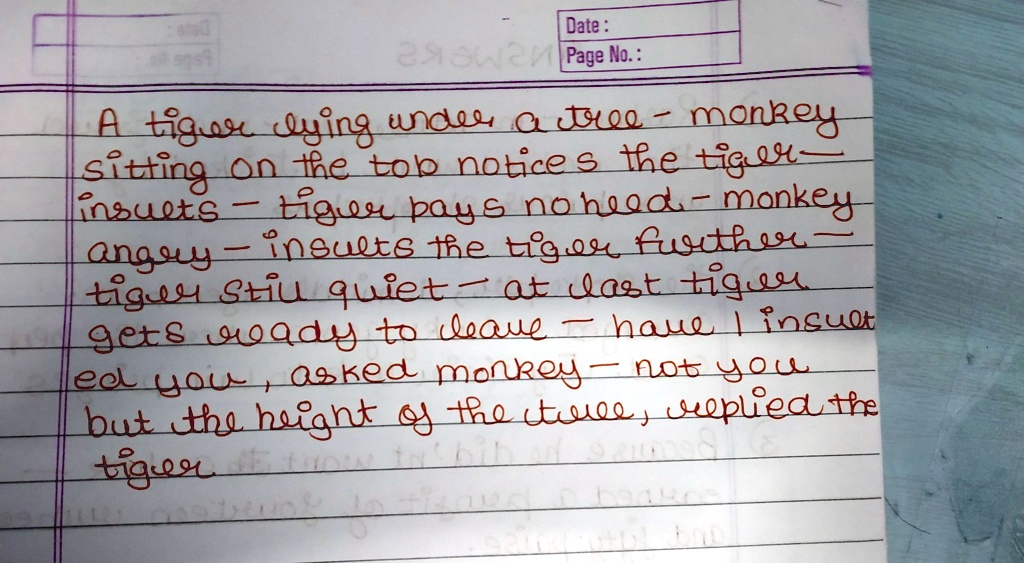 Date :
Page No. :
A tiger lying under a tree - monkey
sitting on the top notices the tiger -
insults - tiger pays no heed - monkey
angry - insults the tiger further -
tiger still quiet - at last tiger
gets ready to leave - have I insult
ed you, asked monkey - not you
but the height of the tree, replied the
tiger